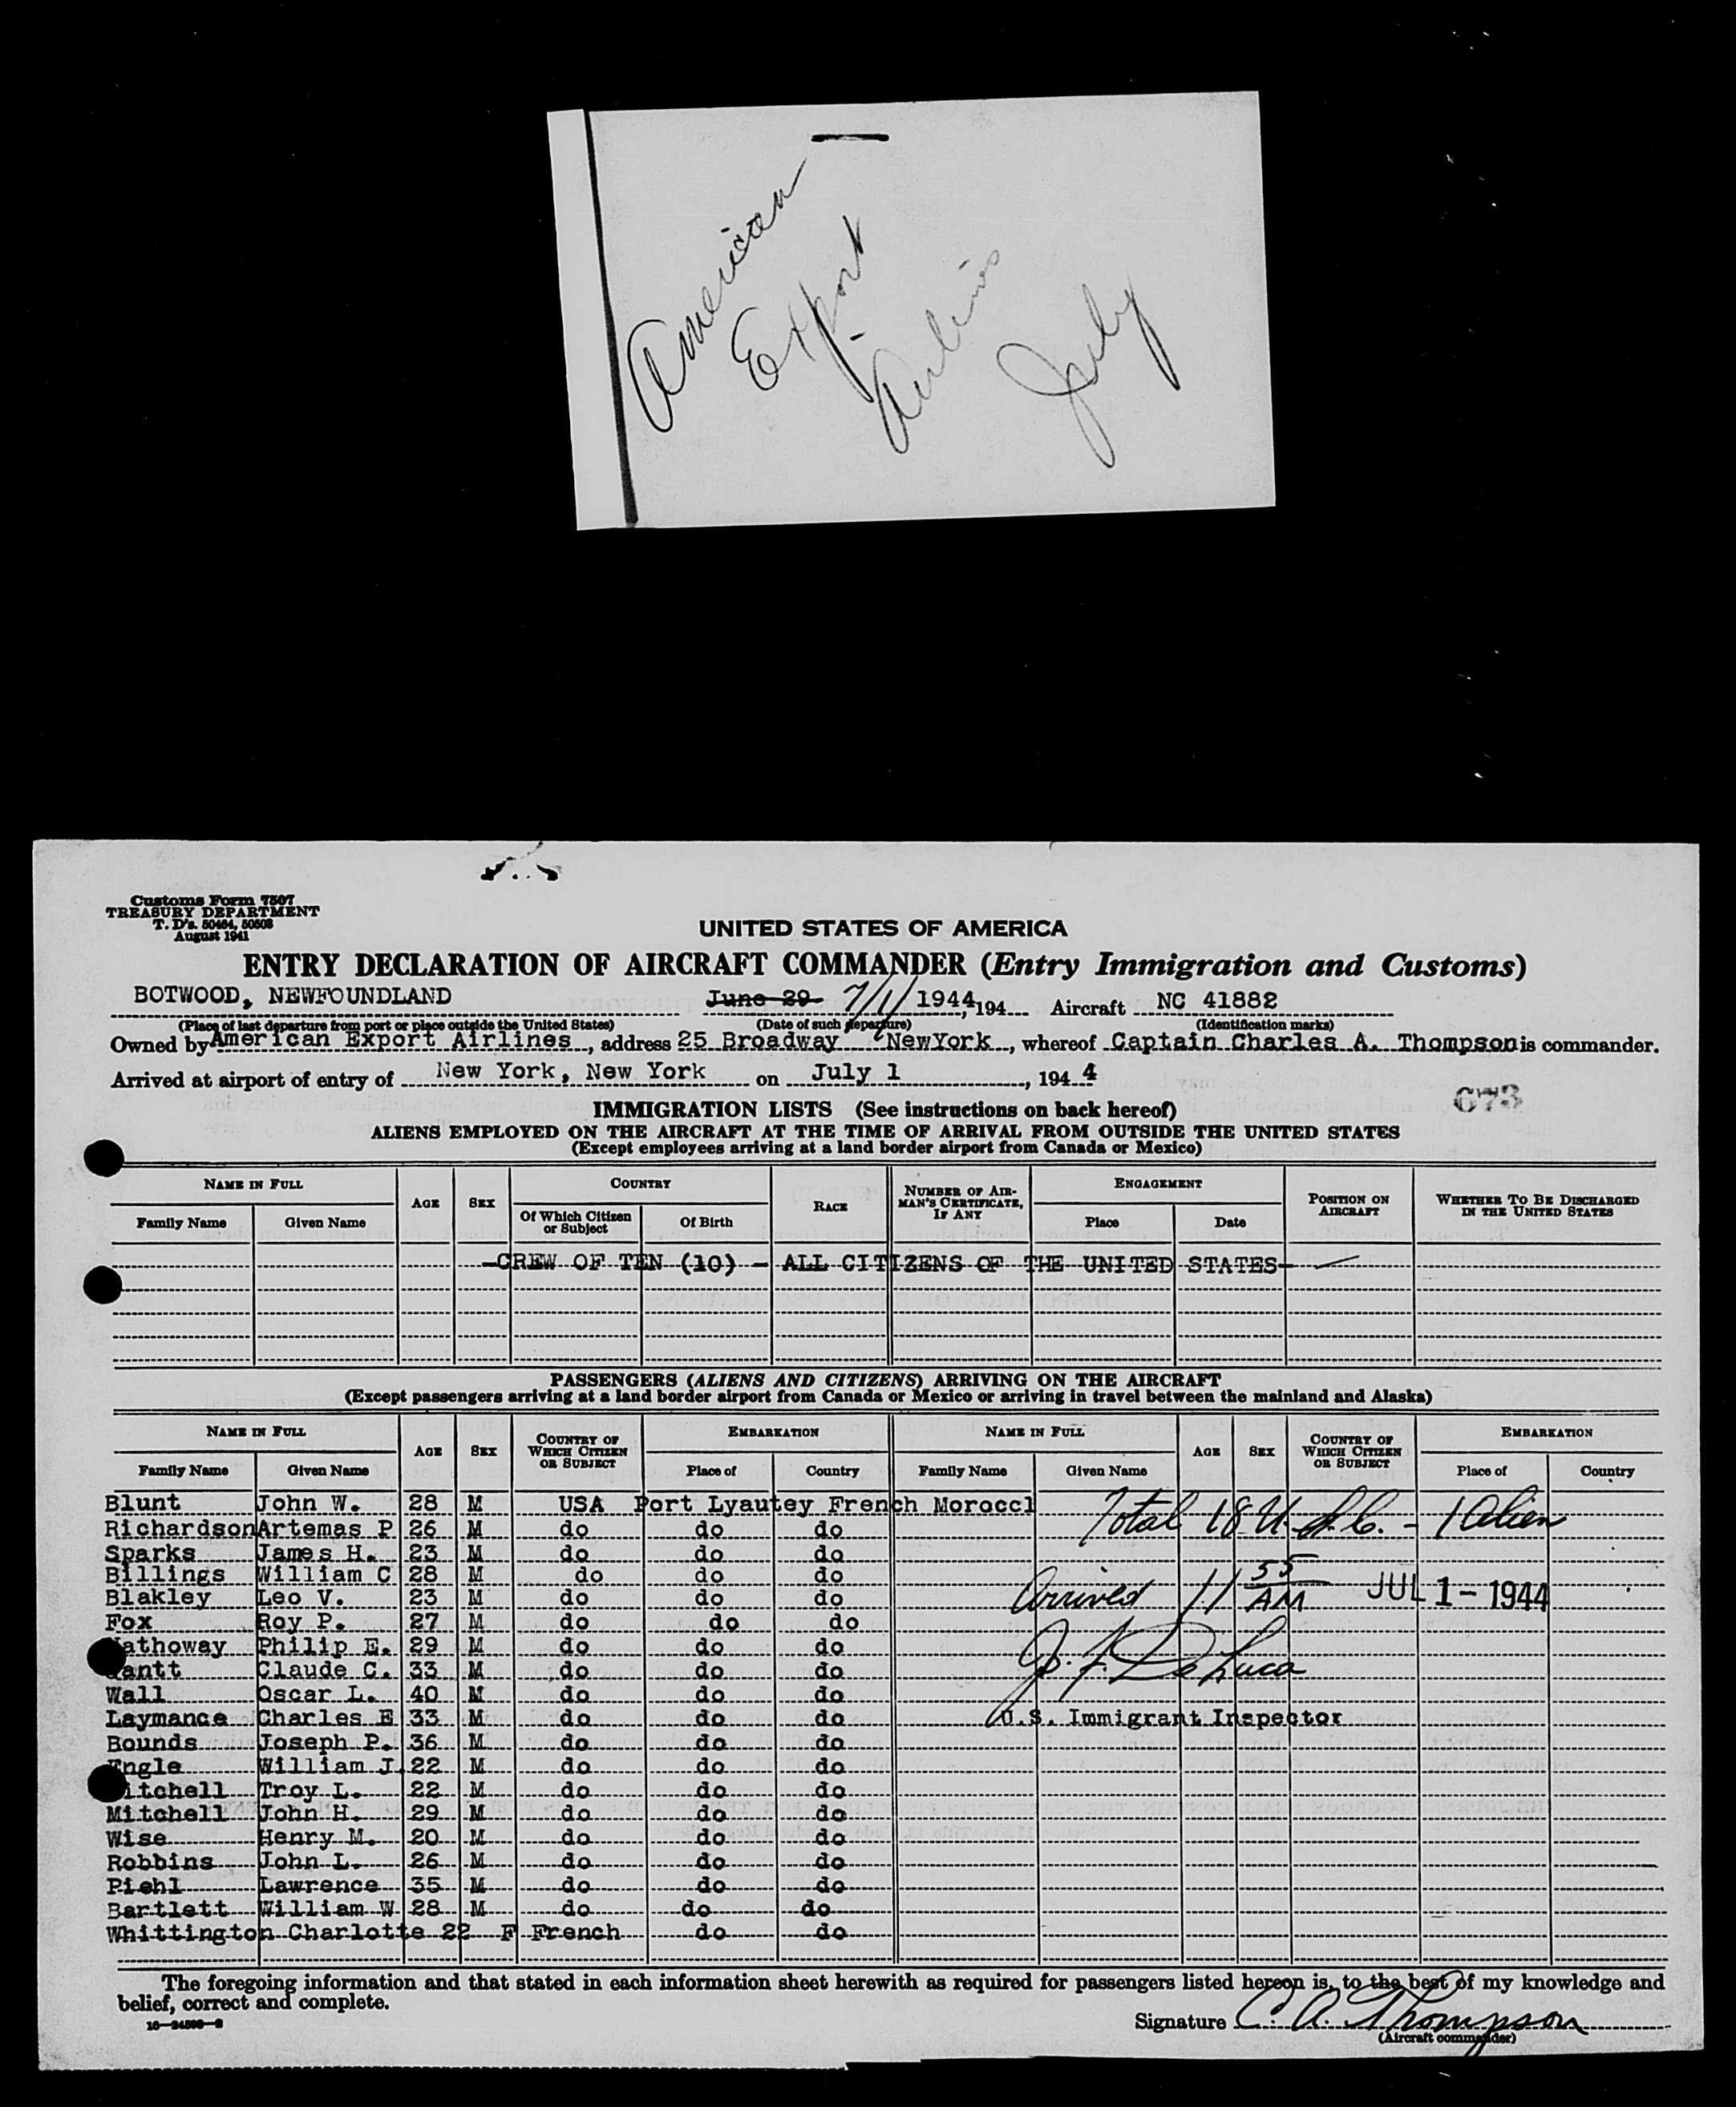 American
Export
Airlines
July
Customs Form 7507
TREASURY DEPARTMENT
T. D's. 50464, 50503
August 1941
UNITED STATES OF AMERICA
ENTRY DECLARATION OF AIRCRAFT COMMANDER (Entry Immigration and Customs)
BOTWOOD, NEWFOUNDLAND June 29 7/1/ 1944, 194 Aircraft NC 41882
(Place of last departure from port or place outside the United States) (Date of such departure) (Identification marks)
Owned by American Export Airlines, address 25 Broadway NewYork, whereof Captain Charles A. Thompson is commander.
Arrived at airport of entry of New York, New York on July 1, 194 4
673
IMMIGRATION LISTS (See instructions on back hereof)
ALIENS EMPLOYED ON THE AIRCRAFT AT THE TIME OF ARRIVAL FROM OUTSIDE THE UNITED STATES
(Except employees arriving at a land border airport from Canada or Mexico)
NAME IN FULL AGE SEX COUNTRY RACE NUMBER OF AIRMAN'S CERTIFICATE, IF ANY ENGAGEMENT POSITION ON AIRCRAFT WHETHER TO BE DISCHARGED IN THE UNITED STATES
Family Name Given Name Of Which Citizen or Subject Of Birth Place Date
-CREW OF TEN (10) - ALL CITIZENS OF THE UNITED STATES-
PASSENGERS (ALIENS AND CITIZENS) ARRIVING ON THE AIRCRAFT
(Except passengers arriving at a land border airport from Canada or Mexico or arriving in travel between the mainland and Alaska)
NAME IN FULL AGE SEX COUNTRY OF WHICH CITIZEN OR SUBJECT EMBARKATION NAME IN FULL AGE SEX COUNTRY OF WHICH CITIZEN OR SUBJECT EMBARKATION
Family Name Given Name Place of Country Family Name Given Name Place of Country
Blunt John W. 28 M USA Port Lyautey French Morocc1 Total 18 U.S.C. - 1 Alien
Richardson Artemas P 26 M do do do
Sparks James H. 23 M do do do
Billings William C 28 M do do do
Blakley Leo V. 23 M do do do Arrived 11 55 AM JUL 1 - 1944
Fox Roy P. 27 M do do do
athoway Philip E. 29 M do do do
antt Claude C. 33 M do do do J. F. De Luca
Wall Oscar L. 40 M do do do
Laymance Charles E 33 M do do do U.S. Immigrant Inspector
Bounds Joseph P. 36 M do do do
Engle William J 22 M do do do
itchell Troy L. 22 M do do do
Mitchell John H. 29 M do do do
Wise Henry M. 20 M do do do
Robbins John L. 26 M do do do
Piehl Lawrence 35 M do do do
Bartlett William W 28 M do do do
Whittington Charlotte 22 F French do do
The foregoing information and that stated in each information sheet herewith as required for passengers listed hereon is, to the best of my knowledge and
belief, correct and complete.
Signature C. A. Thompson
(Aircraft commander)